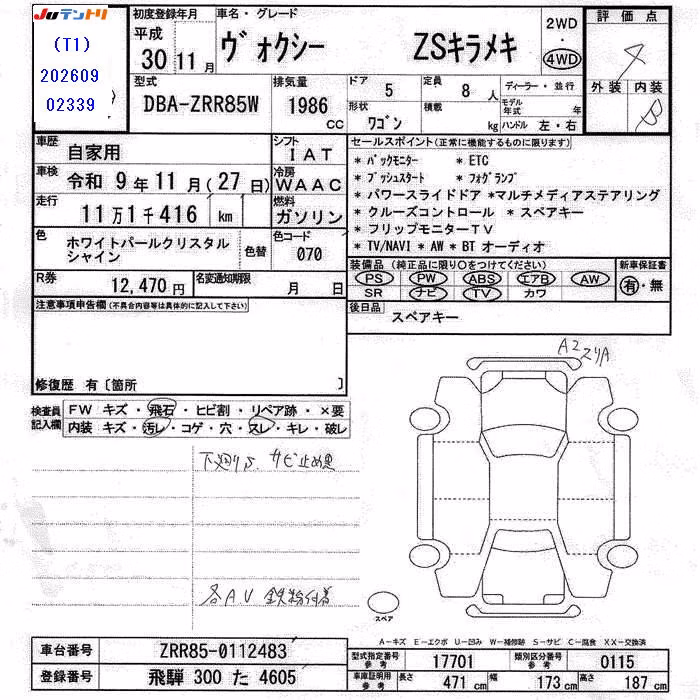 Juテントリ
(T1)
202609
02339
初度登録年月
平成
30 11 月
車名・グレード
ヴォクシー ZSキラメキ
2WD
4WD
評価点
4
外装 内装
B
型式
DBA-ZRR85W
排気量
1986 cc
ドア
5
定員
8 人
形状
ワゴン
積載
kg
ディーラー・並行
モデル年式 年
ハンドル 左・右
車歴
自家用
シフト
IAT
車検
令和 9年 11月(27日)
冷房
WAAC
走行
11万1千416 km
燃料
ガソリン
色
ホワイトパールクリスタル
シャイン
色替
色コード
070
R券
12,470 円
名変通知期限
月 日
セールスポイント(正常に機能するものに限ります)
* バックモニター * ETC
* プッシュスタート * フォグランプ
* パワースライドドア *マルチメディアステアリング
* クルーズコントロール * スペアキー
* フリップモニターTV
* TV/NAVI * AW * BT オーディオ
装備品(純正品に限り○をつけてください)
PS PW ABS エアB AW
SR ナビ TV カワ
新車保証書
有・無
後日品
スペアキー
注意事項申告欄(不具合内容等は具体的に記入して下さい)
修復歴 有〔箇所 〕
検査員記入欄
FW キズ・飛石・ヒビ割・リペア跡・×要
内装 キズ・汚レ・コゲ・穴・スレ・キレ・破レ
下廻りS サビ止め黒
各AU 鉄粉付着
A2
スペア
A-キズ E-エクボ U-凹み W-補修跡 S-サビ C-腐食 XX-交換済
車台番号
ZRR85-0112483
登録番号
飛騨 300 た 4605
型式指定番号
参考
17701
類別区分番号
参考
0115
車庫証明用
参考
長さ 471 cm
幅 173 cm
高さ 187 cm